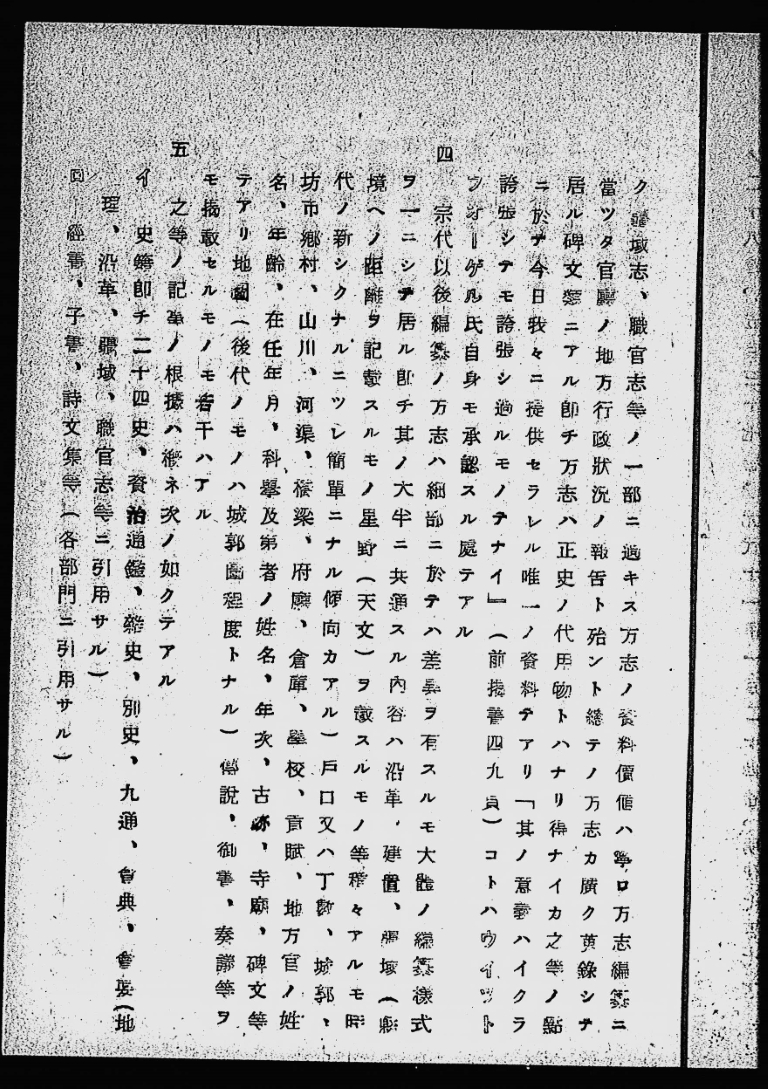 ク疆域志、職官志等ノ一部ニ過キス方志ノ資料價値ハ寧ロ方志編纂ニ
當ツタ官廳ノ地方行政狀況ノ報告ト殆ント總テノ方志カ廣ク蒐錄シテ
居ル碑文類ニアル卽チ方志ハ正史ノ代用物トハナリ得ナイカ之等ノ點
ニ於テ今日我々ニ提供セラレル唯一ノ資料テアリ「其ノ意義ハイクラ
誇張シテモ誇張シ過ルモノテナイ」(前揭書四九頁)コトハウイット
フォーゲル氏自身モ承認スル處テアル
四 宗代以後編纂ノ方志ハ細部ニ於テハ差異ヲ有スルモ大體ノ編纂樣式
ヲ一ニシテ居ル卽チ其ノ大半ニ共通スル內容ハ沿革、建置、疆域(縣
境ヘノ距離ヲ記載スルモノ星野(天文)ヲ載スルモノ等種々アルモ時
代ノ新シクナルニツレ簡單ニナル傾向カアル)戶口又ハ丁數、城郭、
坊市鄉村、山川、河渠、橋梁、府廳、倉庫、學校、貢賦、地方官ノ姓
名、年齡、在任年月、科擧及第者ノ姓名、年次、古跡、寺廟、碑文等
テアリ地圖(後代ノモノハ城郭圖程度トナル)傳說、御書、奏議等ヲ
モ揭載セルモノモ若干ハアル
五 之等ノ記事ノ根據ハ槪ネ次ノ如クテアル
イ 史籍卽チ二十四史、資治通鑑、雜史、別史、九通、會典、會要(地
理、沿革、疆域、職官志等ニ引用サル)
回 經書、子書、詩文集等(各部門ニ引用サル)